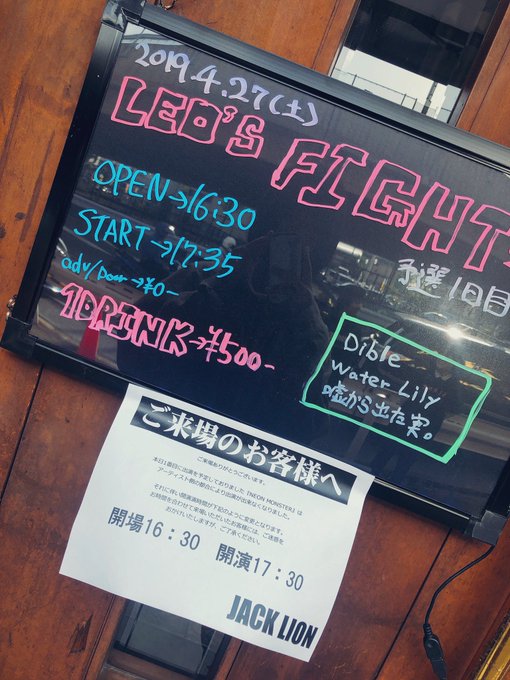 2019.4.27(土)
LEO'S FIGHT
予選1日目
OPEN→16:30
START→17:35
adv/Door→¥0-
1DRINK→¥500-
Dible
Water Lily
嘘から出た実。
ご来場のお客様へ
ご来場ありがとうございます。
本日1番目に出演を予定しておりました「NEON MONSTER」は
アーティスト側の都合により出演が出来なくなりました。
それに伴い開演時間が下記のように変更となります。
お時間を合わせて来場いただいたお客様には、ご迷惑を
おかけいたしますが、ご了承ください。
開場16:30 開演17:30
JACK LION